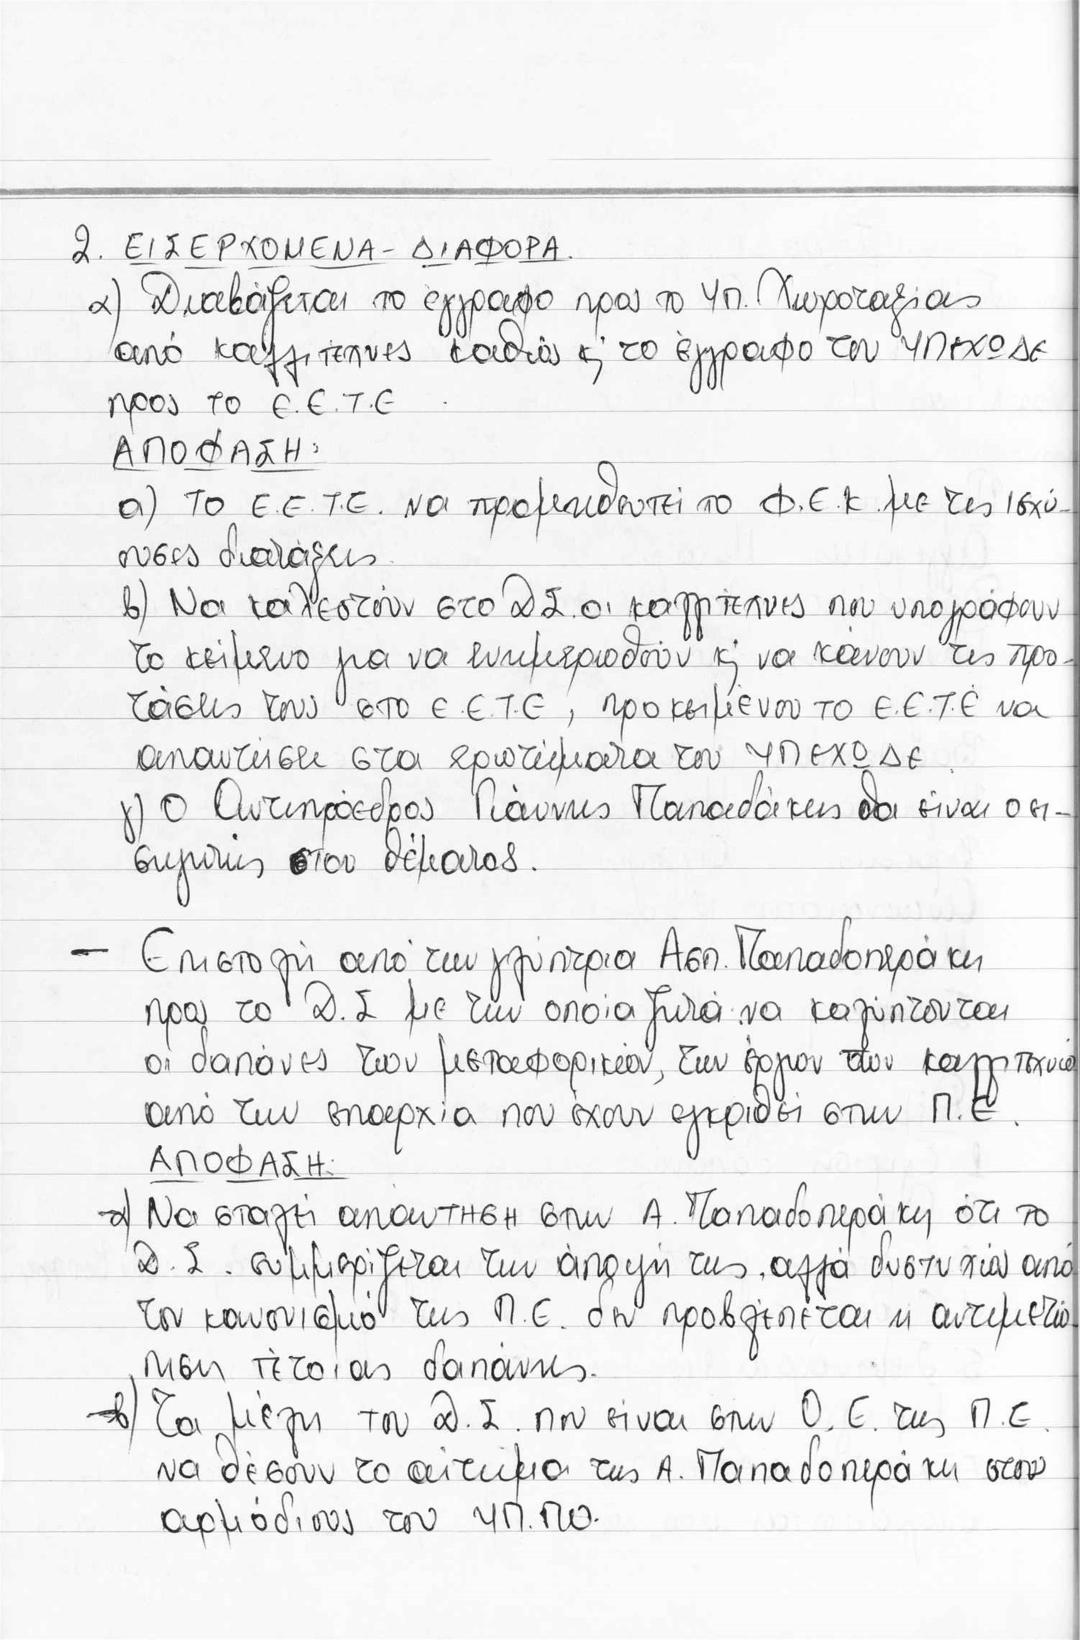 2. ΕΙΣΕΡΧΟΜΕΝΑ - ΔΙΑΦΟΡΑ.
α) Διαβάζεται το έγγραφο προς το ΥΠ. Χωροταξίας
από καλλιτέχνες καθώς κ' το έγγραφο του ΥΠΕΧΩΔΕ
προς το Ε.Ε.Τ.Ε
ΑΠΟΦΑΣΗ:
α) Το Ε.Ε.Τ.Ε. να προμηθευτεί το Φ.Ε.Κ. με τις ισχύ-
ουσες διατάξεις.
β) Να καλεστούν στο Δ.Σ. οι καλλιτέχνες που υπογράφουν
το κείμενο για να ενημερωθούν κ' να κάνουν τις προ-
τάσεις τους στο Ε.Ε.Τ.Ε, προκειμένου το Ε.Ε.Τ.Ε να
απαντήσει στα ερωτήματα του ΥΠΕΧΩΔΕ.
γ) Ο Αντιπρόεδρος Γιάννης Παπαδάκης θα είναι ο ει-
σηγητής του θέματος.
– Επιστολή από την γλύπτρια Ασπ. Παπαδοπεράκη
προς το Δ.Σ με την οποία ζητά να καλύπτονται
οι δαπάνες των μεταφορικών, των έργων των καλλιτεχνών
από την επαρχία που έχουν εγκριθεί στην Π.Ε.
ΑΠΟΦΑΣΗ:
α) Να σταλεί απάντηση στην Α. Παπαδοπεράκη ότι το
Δ.Σ. συμμερίζεται την άποψή της, αλλά δυστυχώς από
τον κανονισμό της Π.Ε. δεν προβλέπεται η αντιμετώ
πιση τέτοιας δαπάνης.
β) Τα μέλη του Δ.Σ. που είναι στην Ο.Ε. της Π.Ε.
να θέσουν το αίτημα της Α. Παπαδοπεράκη στους
αρμόδιους του ΥΠ.ΠΟ.